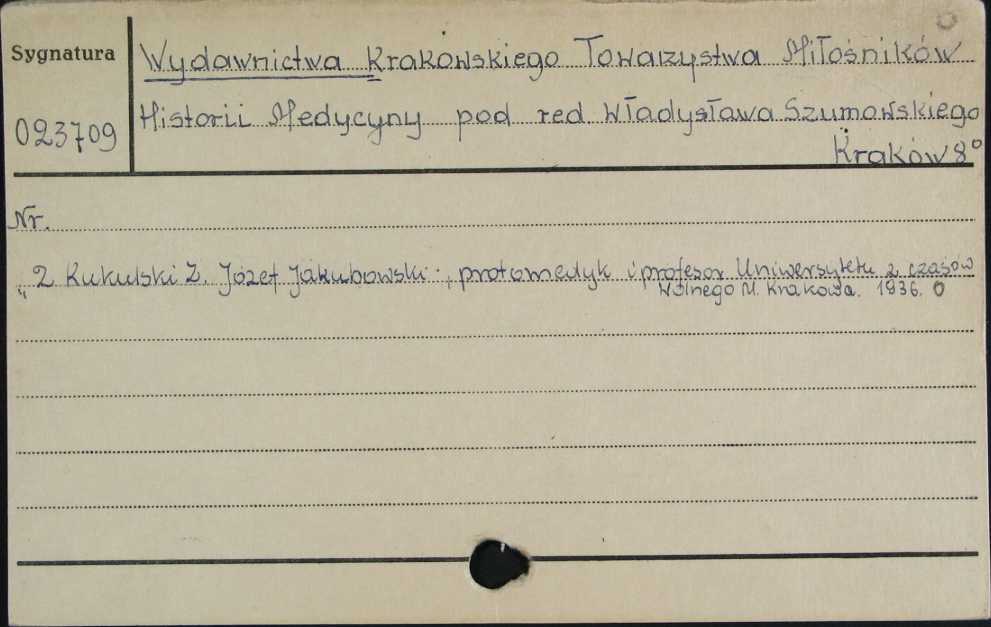 Sygnatura
023709
Wydawnictwa Krakowskiego Towarzystwa Miłośników
Historii Medycyny pod red. Władysława Szumowskiego
Kraków 8°
Nr.
" 2 Kukulski Z. Józef Jakubowski, protomedyk i profesor Uniwersytetu z czasów
Wolnego M. Krakowa. 1936. 0